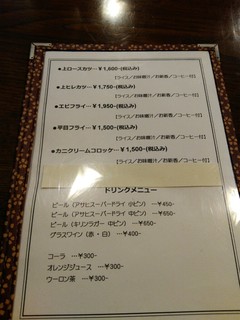 ●上ロースカツ…￥1,600-(税込み)
[ライス／お味噌汁／お新香／コーヒー付]
●上ヒレカツ…￥1,750-(税込み)
[ライス／お味噌汁／お新香／コーヒー付]
●エビフライ…￥1,950-(税込み)
[ライス／お味噌汁／お新香／コーヒー付]
●平目フライ…￥1,500-(税込み)
[ライス／お味噌汁／お新香／コーヒー付]
●カニクリームコロッケ…￥1,500-(税込み)
[ライス／お味噌汁／お新香／コーヒー付]
ドリンクメニュー
ビール（アサヒスーパードライ 小ビン）…￥450-
ビール（アサヒスーパードライ 中ビン）…￥650-
ビール（キリンラガー 中ビン）…￥650-
グラスワイン（赤・白）…￥400-
コーラ …￥300-
オレンジジュース …￥300-
ウーロン茶 …￥300-